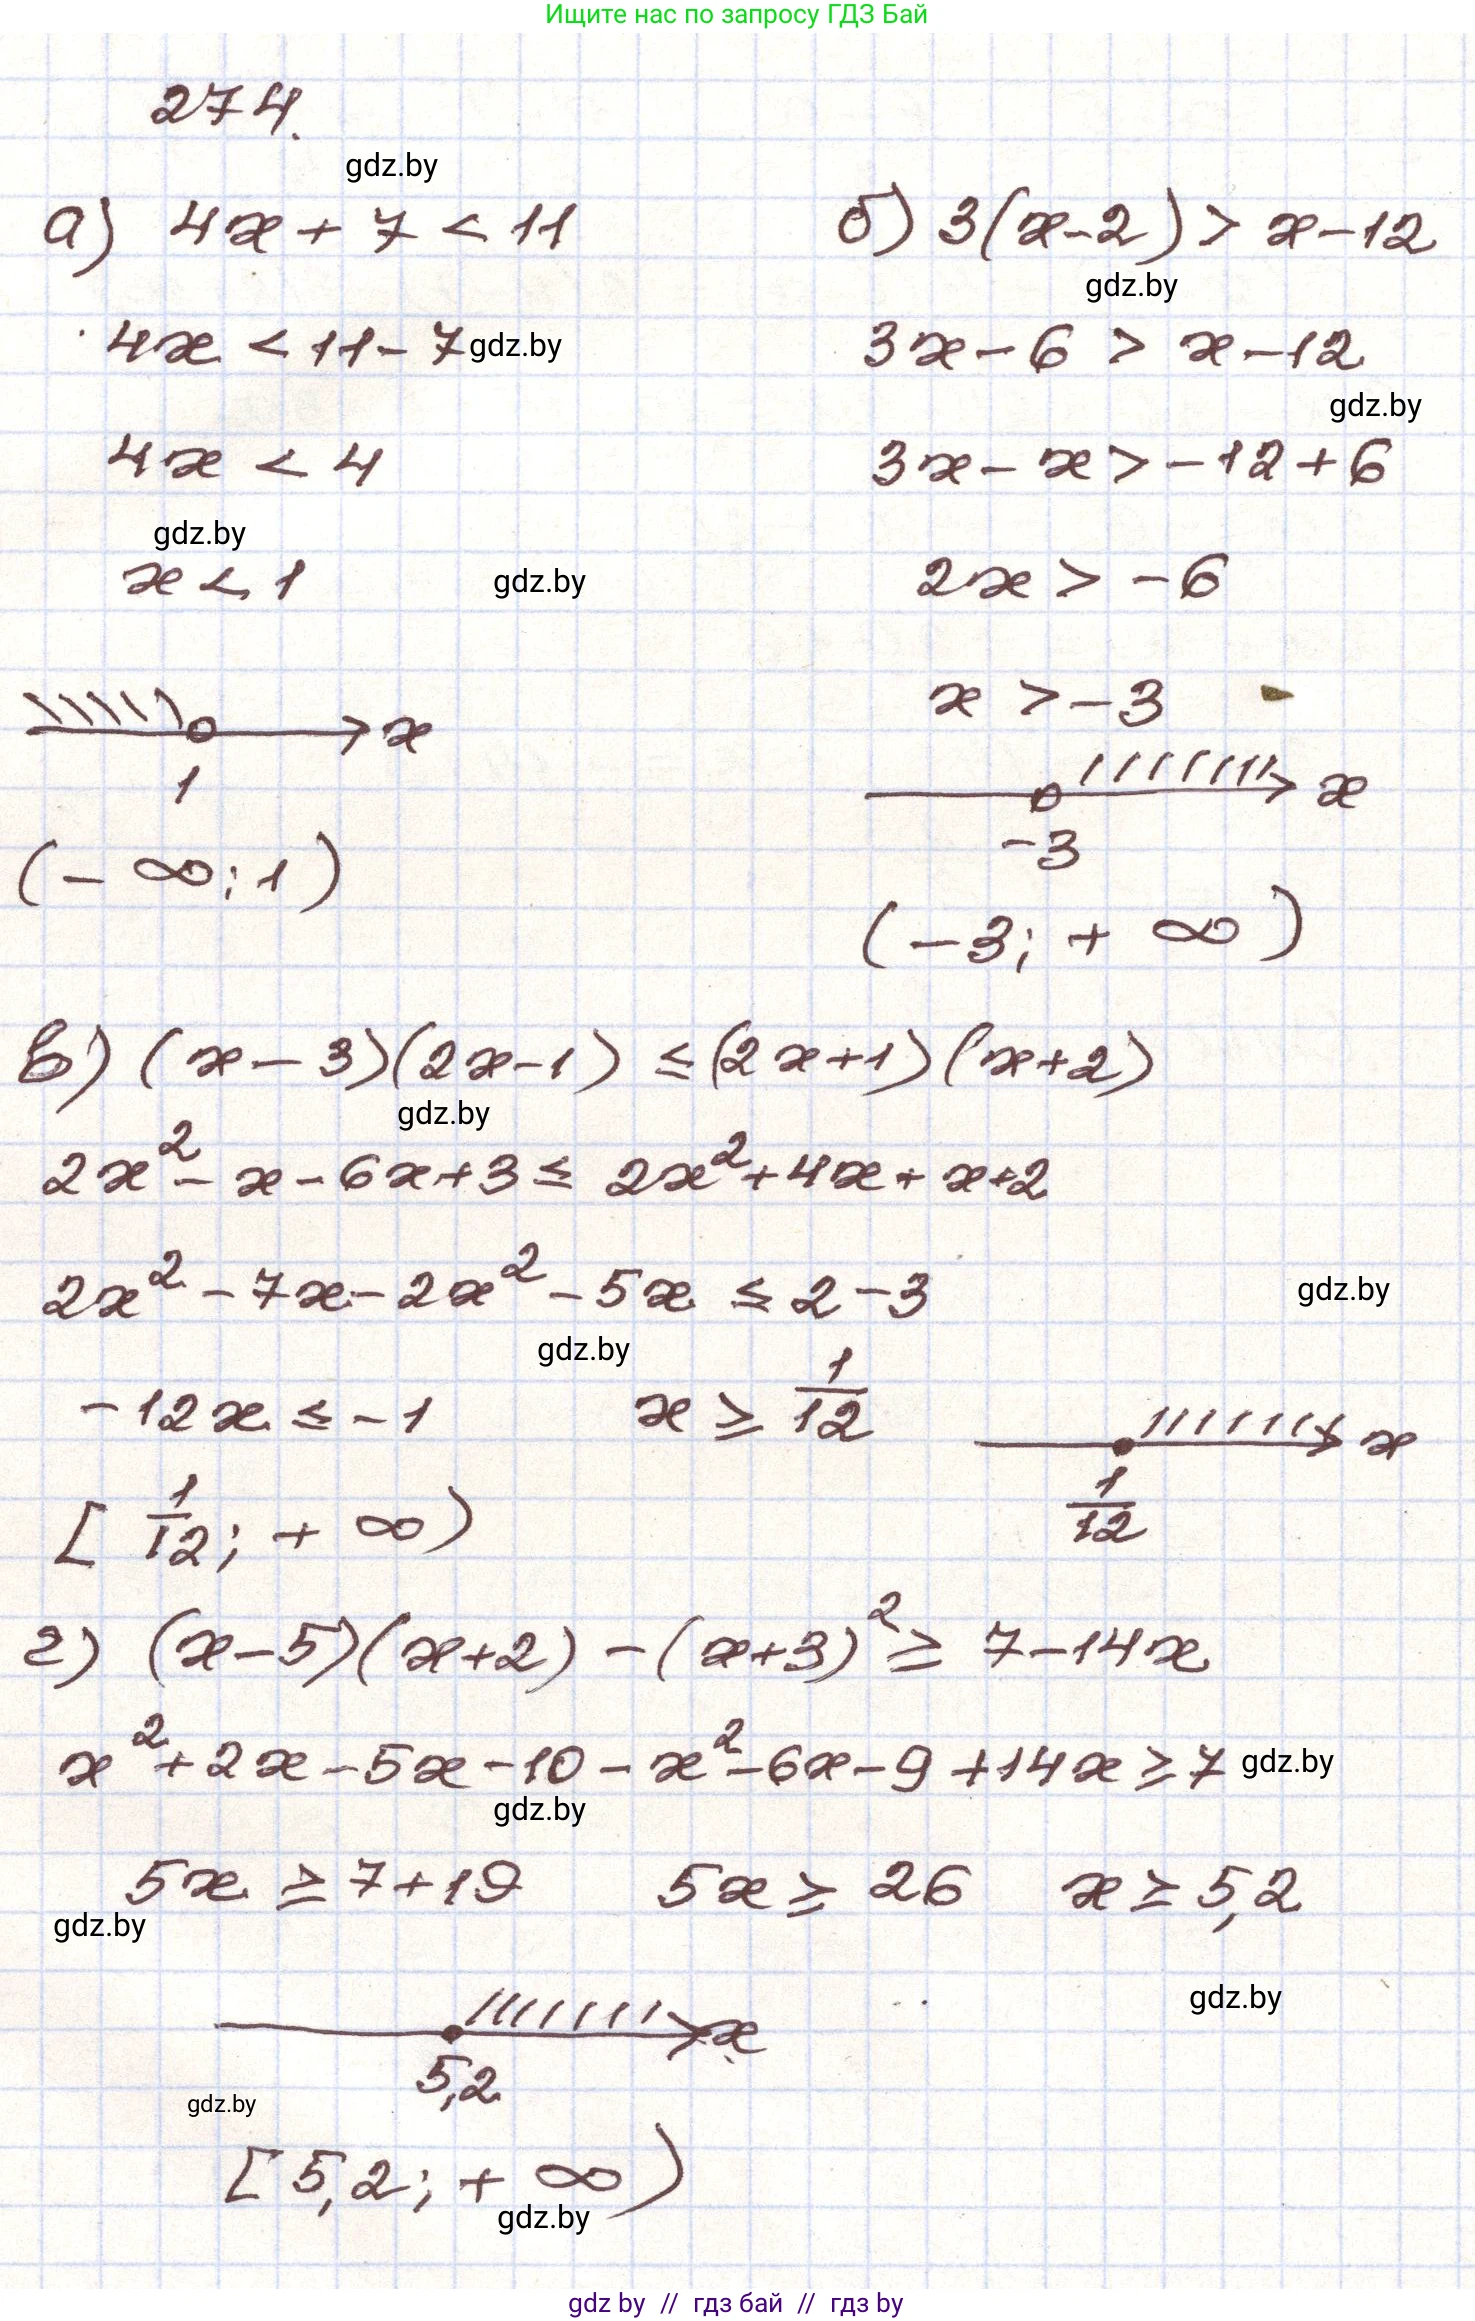 Ищите нас по запросу ГДЗ Бай
274.
gdz.by
а) 4x + 7 < 11
4x < 11 - 7 gdz.by
4x < 4
gdz.by
x < 1
gdz.by
x
1
(- ∞; 1)
б) 3(x-2) > x - 12
gdz.by
3x - 6 > x - 12
gdz.by
3x - x > -12 + 6
2x > -6
x > -3
x
-3
(-3; + ∞)
в) (x - 3)(2x-1) ≤ (2x+1)(x+2)
gdz.by
2x² - x - 6x + 3 ≤ 2x² + 4x + x + 2
2x² - 7x - 2x² - 5x ≤ 2 - 3
gdz.by
gdz.by
-12x ≤ -1 x ≥ 1/12
x
1/12
[1/12; + ∞)
г) (x-5)(x+2) - (x+3)² ≥ 7 - 14x
x² + 2x - 5x - 10 - x² - 6x - 9 + 14x ≥ 7 gdz.by
gdz.by
5x ≥ 7 + 19 5x ≥ 26 x ≥ 5,2
gdz.by
gdz.by
x
5,2
gdz.by
[5,2; + ∞)
gdz.by
gdz by // гдз бай // гдз by